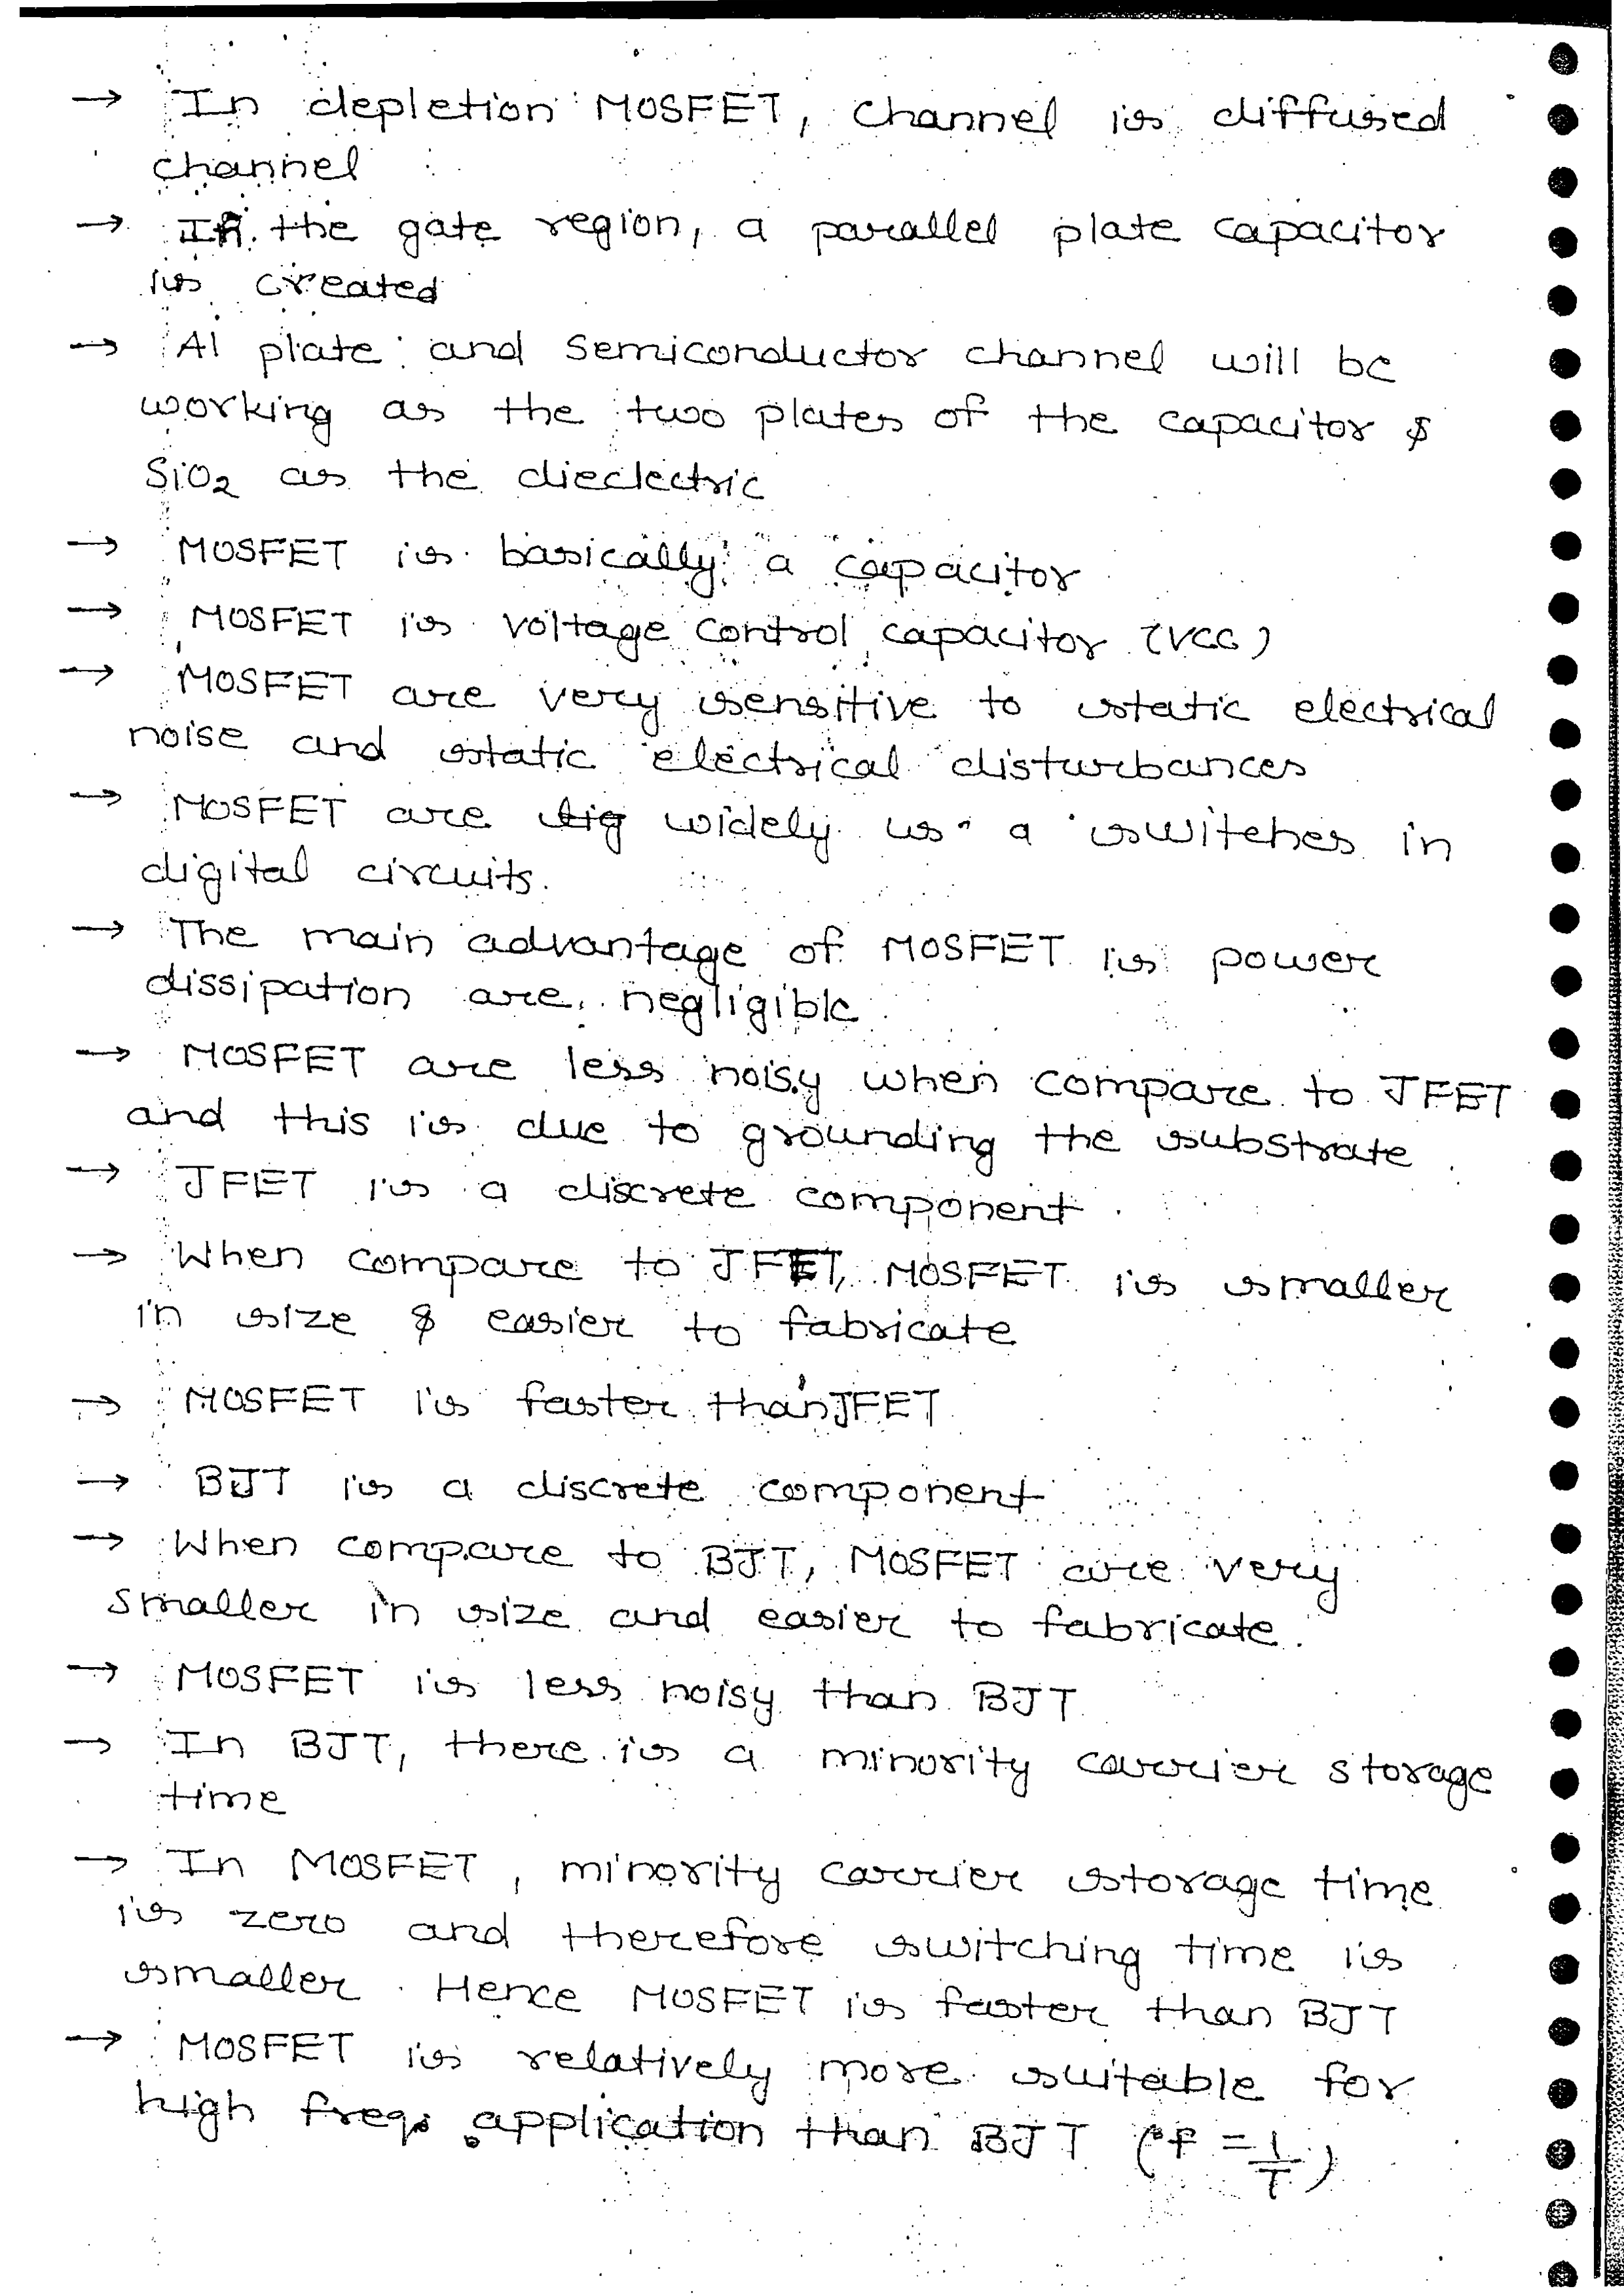 → In depletion MOSFET, channel is diffused
channel
→ In the gate region, a parallel plate capacitor
is created
→ Al plate and semiconductor channel will be
working as the two plates of the capacitor &
SiO₂ as the dieclectric
→ MOSFET is basically a capacitor
→ MOSFET is voltage control capacitor (VCC)
→ MOSFET are very sensitive to static electrical
noise and static electrical disturbances
→ MOSFET are widely us a switches in
digital circuits.
→ The main advantage of MOSFET is power
dissipation are negligible
→ MOSFET are less noisy when compare to JFET
and this is due to grounding the substrate.
→ JFET is a discrete component.
→ When compare to JFET, MOSFET is smaller
in size & easier to fabricate
→ MOSFET is faster than JFET
→ BJT is a discrete component
→ When compare to BJT, MOSFET are very
smaller in size and easier to fabricate.
→ MOSFET is less noisy than BJT
→ In BJT, there is a minority carrier storage
time
→ In MOSFET, minority carrier storage time
is zero and therefore switching time is
smaller. Hence MOSFET is faster than BJT
→ MOSFET is relatively more suitable for
high freq. application than BJT (∵ f = 1/T)